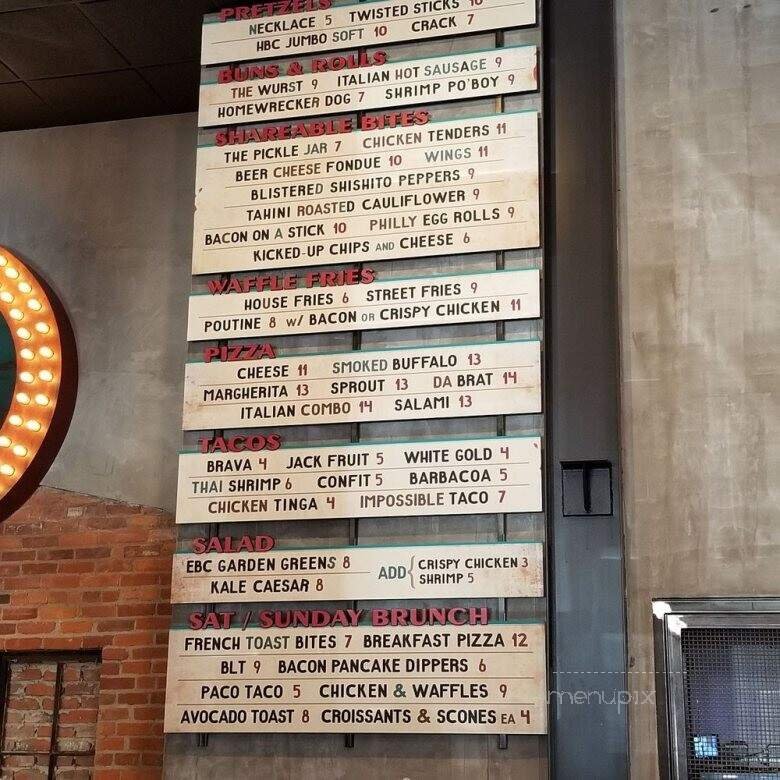 PRETZELS
NECKLACE 5 TWISTED STICKS 10
HBC JUMBO SOFT 10 CRACK 7
BUNS & ROLLS
THE WURST 9 ITALIAN HOT SAUSAGE 9
HOMEWRECKER DOG 7 SHRIMP PO'BOY 9
SHAREABLE BITES
THE PICKLE JAR 7 CHICKEN TENDERS 11
BEER CHEESE FONDUE 10 WINGS 11
BLISTERED SHISHITO PEPPERS 9
TAHINI ROASTED CAULIFLOWER 9
BACON ON A STICK 10 PHILLY EGG ROLLS 9
KICKED-UP CHIPS AND CHEESE 6
WAFFLE FRIES
HOUSE FRIES 6 STREET FRIES 9
POUTINE 8 W/ BACON OR CRISPY CHICKEN 11
PIZZA
CHEESE 11 SMOKED BUFFALO 13
MARGHERITA 13 SPROUT 13 DA BRAT 14
ITALIAN COMBO 14 SALAMI 13
TACOS
BRAVA 4 JACK FRUIT 5 WHITE GOLD 4
THAI SHRIMP 6 CONFIT 5 BARBACOA 5
CHICKEN TINGA 4 IMPOSSIBLE TACO 7
SALAD
EBC GARDEN GREENS 8
KALE CAESAR 8
ADD { CRISPY CHICKEN 3
SHRIMP 5
SAT / SUNDAY BRUNCH
FRENCH TOAST BITES 7 BREAKFAST PIZZA 12
BLT 9 BACON PANCAKE DIPPERS 6
PACO TACO 5 CHICKEN & WAFFLES 9
AVOCADO TOAST 8 CROISSANTS & SCONES EA 4
menupix